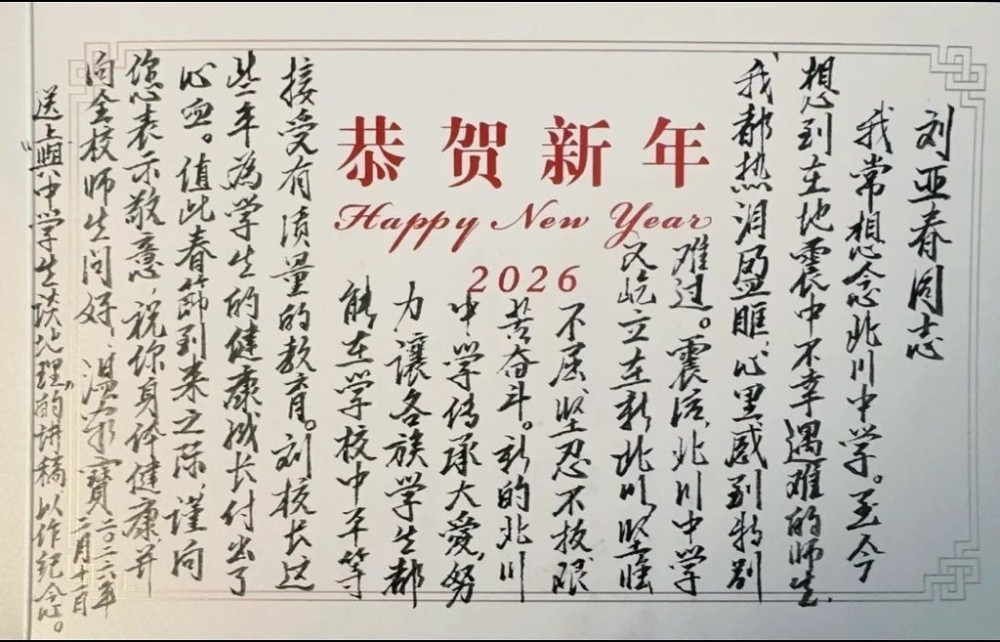 恭贺新年
Happy New Year
2026
刘亚春同志
我常想念北川中学。至今
想到在地震中不幸遇难的师生,
我都热泪盈眶,心里感到特别
难过。震后,北川中学
又屹立在新北川,坚强
不屈,坚忍不拔,艰
苦奋斗。新的北川
中学传承大爱,努
力讓各族学生都
能在学校中平等
接受有质量的教育。刘校长这
些年為学生的健康成长付出了
心血。值此春節到来之际,谨向
您表示敬意,祝你身体健康,并
向全校师生问好。温家寶 二〇二六年
二月十一日
送上“與中学生谈地理”的讲稿以作纪念。